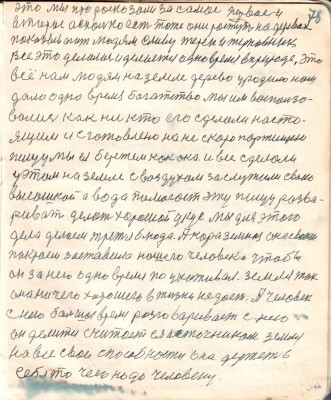 это мы про рассказали за самое первое и 78
второе а сколько есть тоже они растут на деревах
показывают людям сливу терен и терновник
все это делалось и делается одно время в природе, это
всё нам людям на земле дерево уродило нам
дало одно время богатство мы им воспользо-
вались как ни кто его сделали насто-
ящим и сготовлено на не скоро портящую
пищу мы ее бережем как ока и все сделали
у этом на земле с воздухом заслужили своею
высыпкой а вода помогает эту пищу разва-
ривать делать хороший укус мы для этого
дела делаем третье блюда. А как земля она своим
покроем заставила нашего человека чтобы
он за него одно время по ухаживал. Земля так
она ничего хорошего в жизни не дает. А человек
с нею больше время разговаривает с нею
он делится считает ея источником землю
на все свои способности она держет в
себя то чего надо человеку.